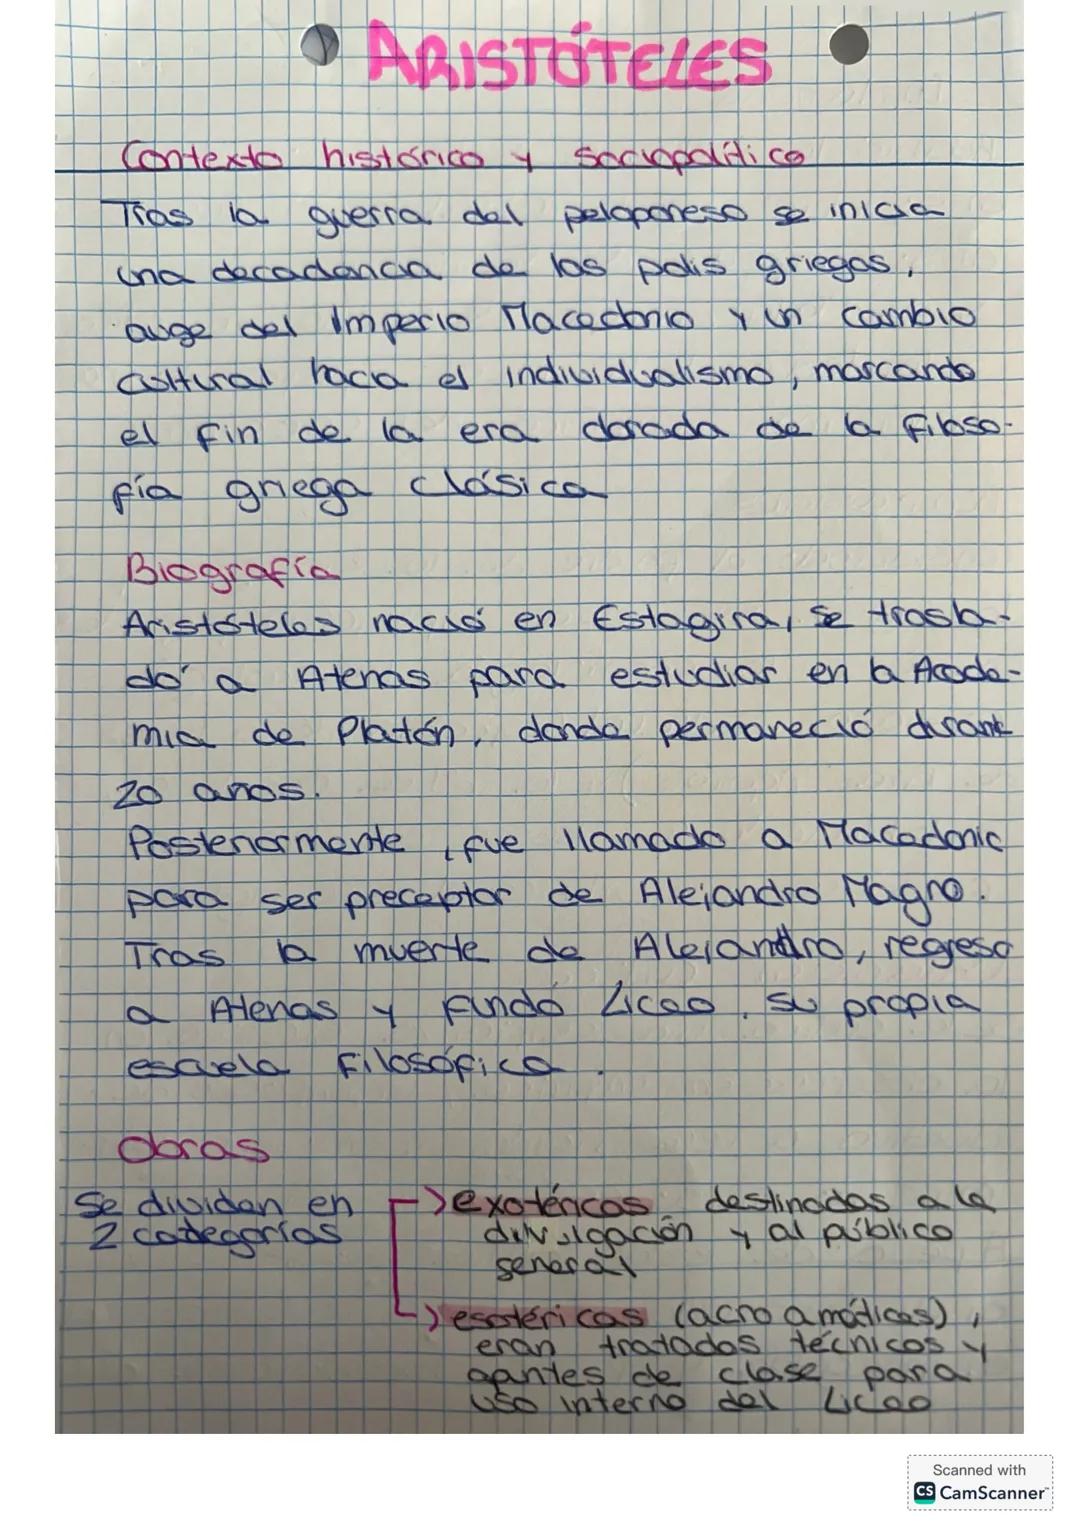 ARISTÓTELES
Contexto histórico y sociopolítico
Tras la guerra del peloponeso se inicia
una decadencia de las polis griegas,
auge del Imperio Macedonio y un cambio
cultural hacia el individualismo, marcando
el fin de la era dorada de la filoso-
fía griega clásica
Biografía
Aristóteles nació en Estagira, se trasla-
dó a Atenas para estudiar en la Acade-
mia de Platón, donde permaneció durante
20 años.
Posteriormente, fue llamado a Macedonia
para ser preceptor de Alejandro Magno.
Tras la muerte de Alejandro, regreso
a Atenas y fundó Liceo, su propia
escuela filosófica.
Obras
Se dividen en
2 categorías
exotéricas destinadas a la
divulgación y al público
general
esotéricas (acroamáticas),
eran tratados técnicos y
apuntes de clase para
uso interno del Liceo
Scanned with
CS CamScanner